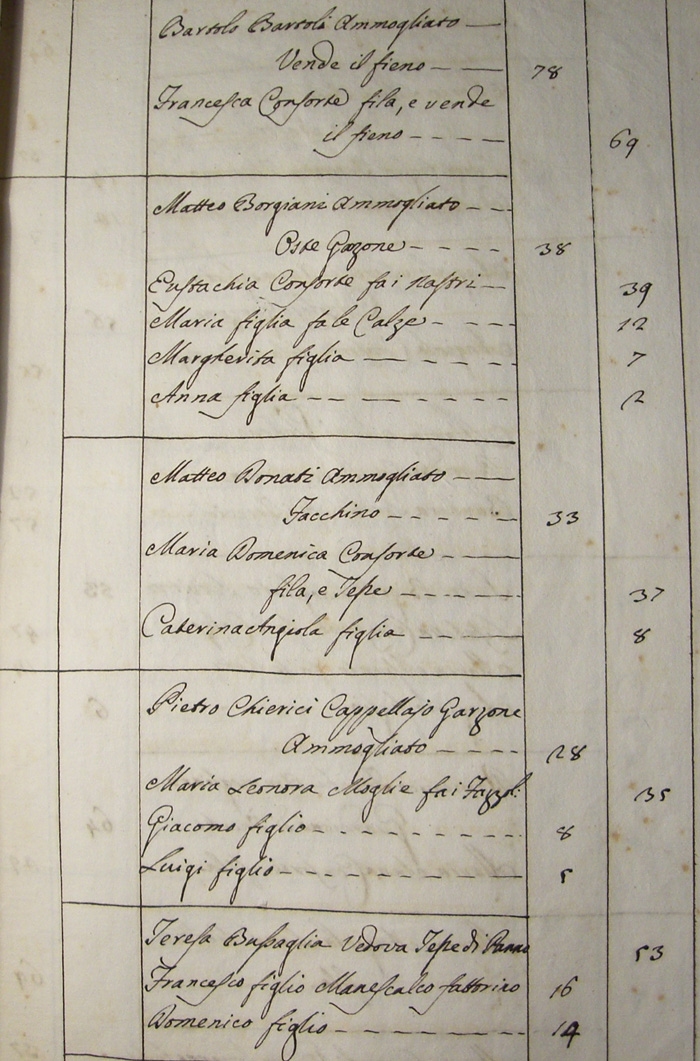 Bartolo Bartoli Ammogliato
Vende il fieno 78
Francesca Consorte fila, e vende
il fieno 69
Matteo Borgiani Ammogliato
Oste Gazone 38
Eustachia Consorte fa i nastri 39
Maria figlia fa le Calze 12
Margherita figlia 7
Anna figlia 2
Matteo Donati Ammogliato
Facchino 33
Maria Domenica Consorte
fila, e Tesse 37
Caterina Angiola figlia 8
Pietro Chierici Cappellajo Garzone
Ammogliato 28
Maria Leonora Moglie fa i Fazzol: 35
Giacomo figlio 8
Luigi figlio 5
Teresa Bussaglia Vedova Tesse di Panno 53
Francesco figlio Manescalco fattorino 16
Domenico figlio 14